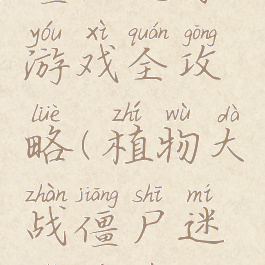 yóu xì quán gōng
游戏全攻
lüè zhí wù dà
略(植物大
zhàn jiāng shī mí
战僵尸迷